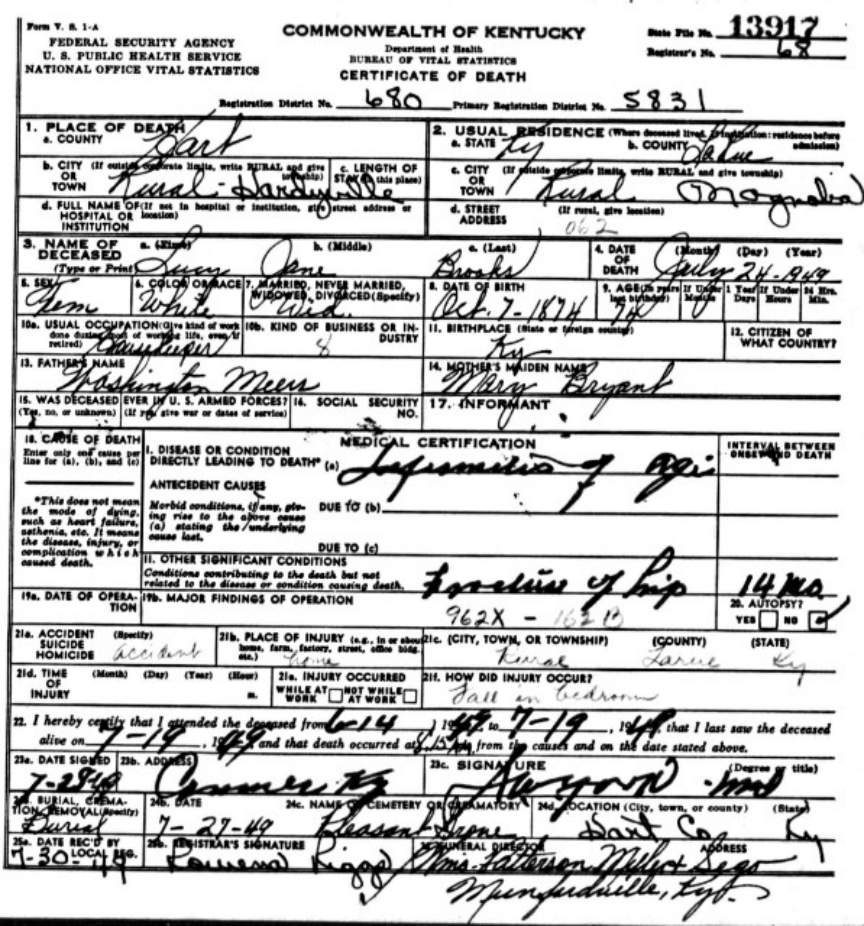 Form V. S. 1-A
FEDERAL SECURITY AGENCY
U. S. PUBLIC HEALTH SERVICE
NATIONAL OFFICE VITAL STATISTICS
COMMONWEALTH OF KENTUCKY
Department of Health
BUREAU OF VITAL STATISTICS
CERTIFICATE OF DEATH
State File No. 13917
Registrar's No. 68
Registration District No. 680 Primary Registration District No. 5831
1. PLACE OF DEATH
a. COUNTY Hart
2. USUAL RESIDENCE (Where deceased lived. If institution: residence before admission)
a. STATE Ky b. COUNTY LaRue
b. CITY (If outside corporate limits, write RURAL and give township) OR TOWN Rural - Hardyville
c. LENGTH OF STAY (in this place)
c. CITY (If outside corporate limits, write RURAL and give township) OR TOWN Rural Magnolia
d. FULL NAME OF (If not in hospital or institution, give street address or location) HOSPITAL OR INSTITUTION
d. STREET ADDRESS (If rural, give location) 062
3. NAME OF DECEASED (Type or Print) a. (First) Lucy b. (Middle) Jane c. (Last) Brooks
4. DATE OF DEATH (Month) (Day) (Year) July 24-1949
5. SEX Fem
6. COLOR OR RACE White
7. MARRIED, NEVER MARRIED, WIDOWED, DIVORCED (Specify) Wid.
8. DATE OF BIRTH Oct. 7-1874
9. AGE (In years last birthday) 74 If Under 1 Year Months Days If Under 24 Hrs. Hours Min.
10a. USUAL OCCUPATION (Give kind of work done during most of working life, even if retired) Housekeeper
10b. KIND OF BUSINESS OR INDUSTRY 8
11. BIRTHPLACE (State or foreign country) Ky
12. CITIZEN OF WHAT COUNTRY?
13. FATHER'S NAME Washington Meers
14. MOTHER'S MAIDEN NAME Mary Bryant
15. WAS DECEASED EVER IN U. S. ARMED FORCES? (Yes, no, or unknown) (If yes, give war or dates of service)
16. SOCIAL SECURITY NO.
17. INFORMANT
18. CAUSE OF DEATH
Enter only one cause per line for (a), (b), and (c)
*This does not mean the mode of dying, such as heart failure, asthenia, etc. It means the disease, injury, or complication which caused death.
MEDICAL CERTIFICATION
INTERVAL BETWEEN ONSET AND DEATH
I. DISEASE OR CONDITION DIRECTLY LEADING TO DEATH* (a) Infirmities of age
ANTECEDENT CAUSES
Morbid conditions, if any, giving rise to the above cause (a) stating the underlying cause last.
DUE TO (b)
DUE TO (c)
II. OTHER SIGNIFICANT CONDITIONS
Conditions contributing to the death but not related to the disease or condition causing death.
Fracture of hip 14 mo.
19a. DATE OF OPERATION
19b. MAJOR FINDINGS OF OPERATION
962X - 162B
20. AUTOPSY? YES NO
21a. ACCIDENT SUICIDE HOMICIDE (Specify) accident
21b. PLACE OF INJURY (e.g., in or about home, farm, factory, street, office bldg. etc.) home
21c. (CITY, TOWN, OR TOWNSHIP) (COUNTY) (STATE)
Rural Larue Ky
21d. TIME OF INJURY (Month) (Day) (Year) (Hour) m.
21e. INJURY OCCURRED WHILE AT WORK NOT WHILE AT WORK
21f. HOW DID INJURY OCCUR? Fall in bedroom
22. I hereby certify that I attended the deceased from 6-14, 1949, to 7-19, 1949, that I last saw the deceased
alive on 7-19, 1949 and that death occurred at from the causes and on the date stated above.
23a. DATE SIGNED
23b. ADDRESS Canmer Ky
23c. SIGNATURE (Degree or title) MD
24a. BURIAL, CREMATION, REMOVAL (Specify) Burial
24b. DATE 7-27-49
24c. NAME OF CEMETERY OR CREMATORY Pleasant Grove
24d. LOCATION (City, town, or county) (State) Hart Co. Ky
25a. DATE REC'D BY LOCAL REG. 7-30-49
25b. REGISTRAR'S SIGNATURE Riggs
FUNERAL DIRECTOR ADDRESS
Patterson Miller & Sego
Munfordville, Ky.